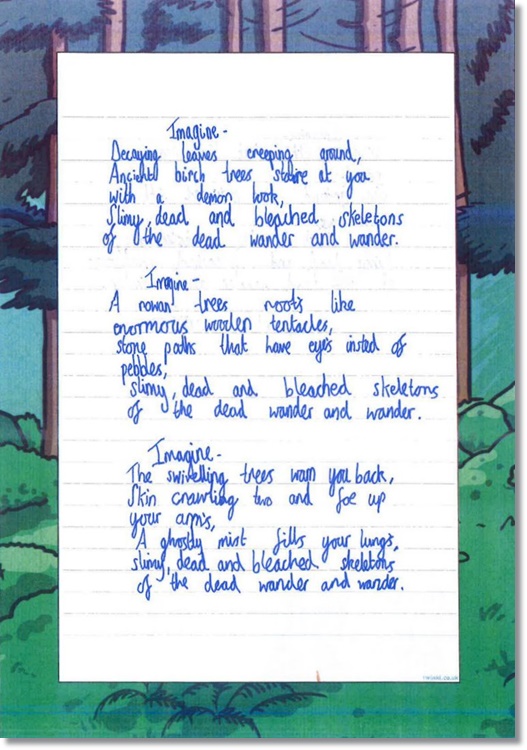 Imagine-
Decaying leaves creeping around,
Ancient birch trees stare at you
with a demon look,
Slimy, dead and bleached skeletons
of the dead wander and wander.
Imagine-
A rowan trees roots like
enormous wooden tentacles,
stone paths that have eyes insted of
pebbles,
slimy, dead and bleached skeletons
of the dead wander and wander.
Imagine-
The swivelling trees warn you back,
Skin crawling two and foe up
your arm's,
A ghostly mist fills your lungs,
slimy, dead and bleached skeletons
of the dead wander and wander.